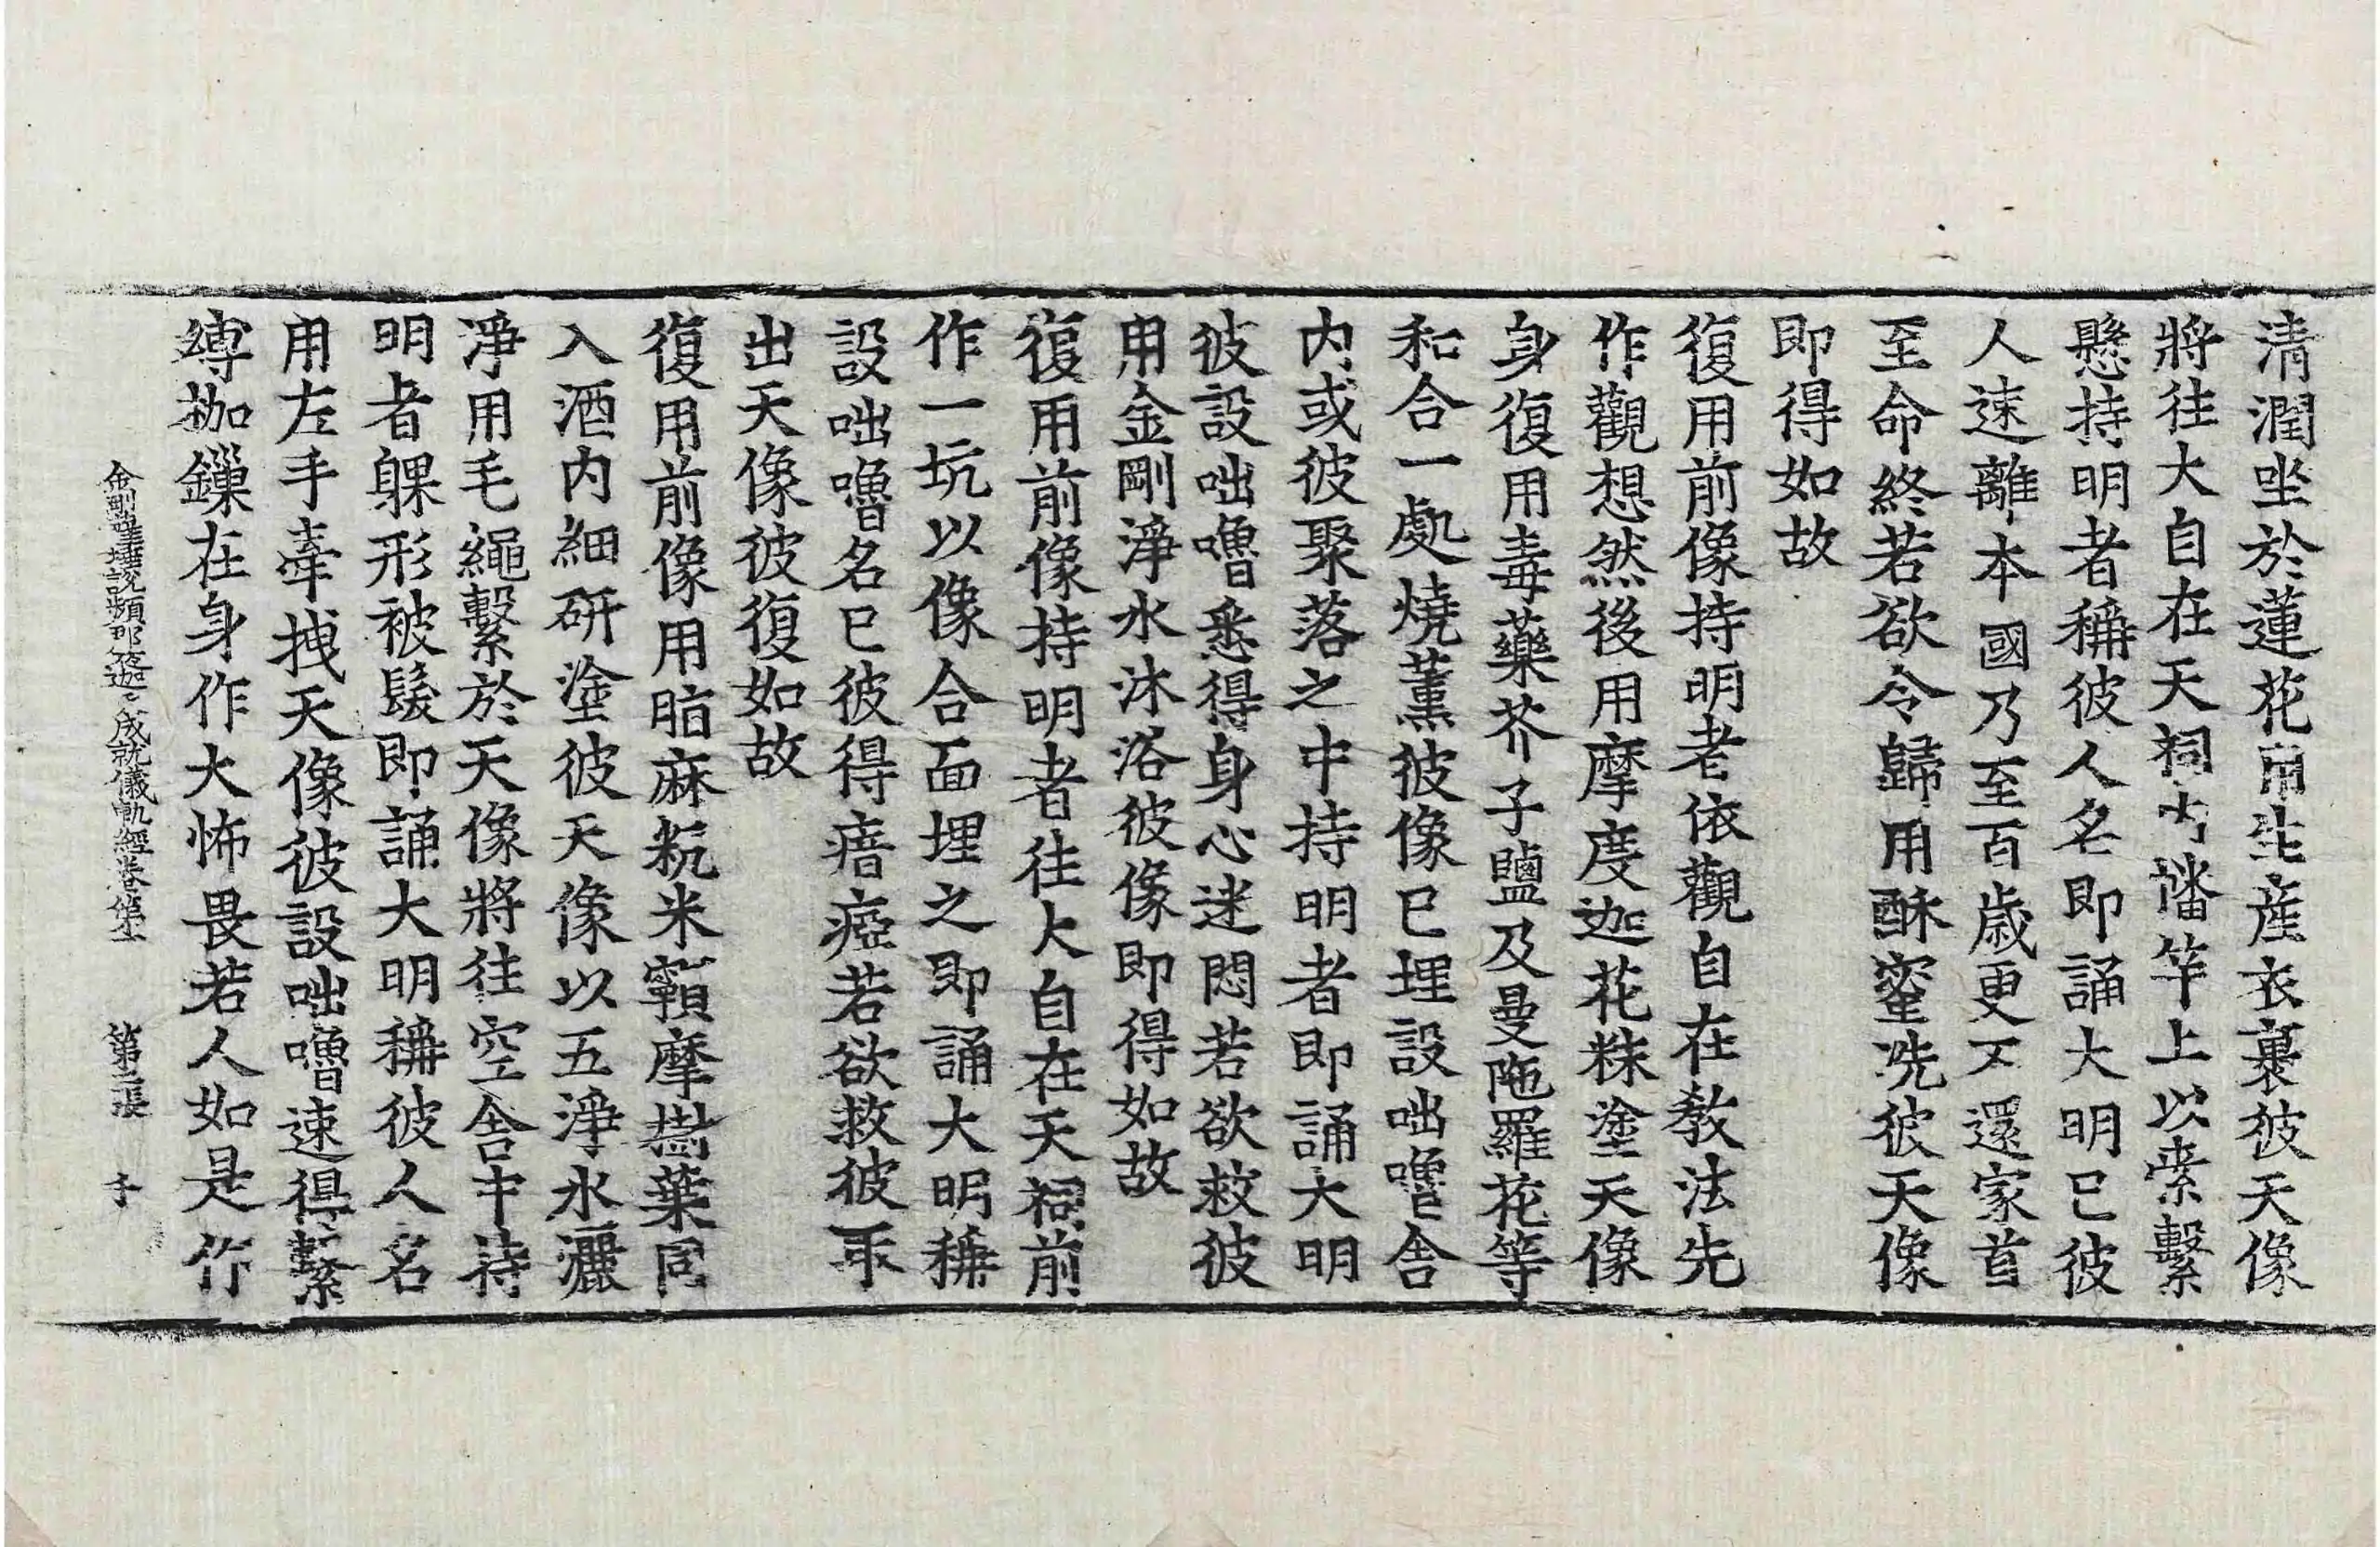 清潤坐於蓮花用生産衣裹彼天像
將往大自在天祠内旛竿上以索繫
懸持明者稱彼人名即誦大明已彼
人速離本國乃至百歳更不還家首
至命終若欲令歸用酥蜜洗彼天像
即得如故
復用前像持明者依觀自在教法先
作觀想然後用摩度迦花粖塗天像
身復用毒藥芥子鹽及曼陁羅花等
和合一處燒薰彼像已埋設咄嚕舎
内或彼聚落之中持明者即誦大明
彼設咄嚕悉得身心迷悶若欲救彼
用金剛淨水沐浴彼像即得如故
復用前像持明者往大自在天祠前
作一坑以像合面埋之即誦大明稱
設咄嚕名已彼得瘖瘂若欲救彼取
出天像彼復如故
復用前像用脂麻粇米䪴摩樹葉同
入酒内細研塗彼天像以五淨水灑
淨用毛繩繫於天像將往空舎中持
明者躶形被髮即誦大明稱彼人名
用左手牽拽天像彼設咄嚕速得繫
縛枷鏁在身作大怖畏若人如是作
金剛薩埵說頻那夜迦天成就儀軌經卷第一 第三張 卡